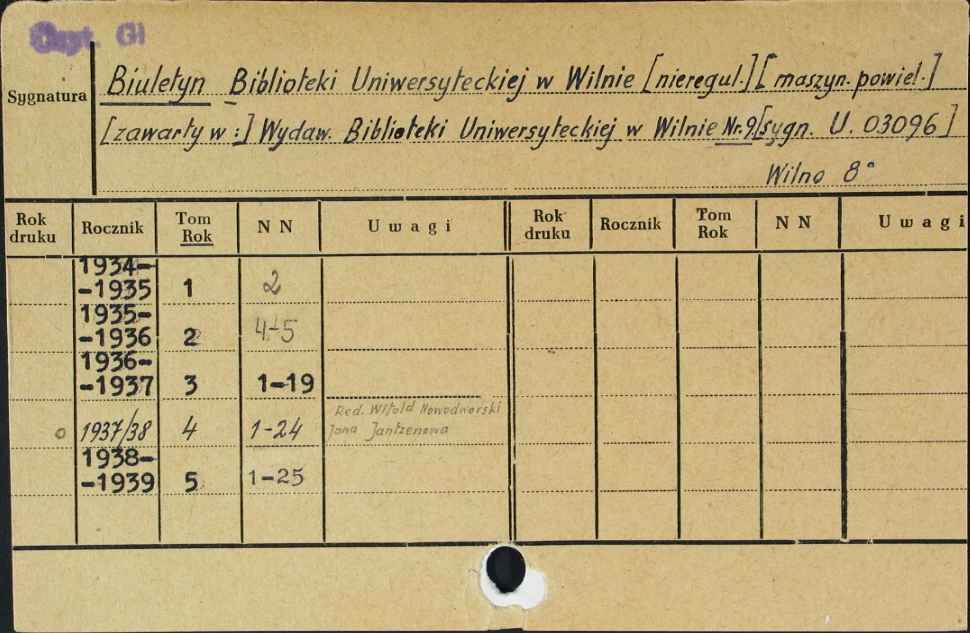 Czyt. Gł
Sygnatura
Biuletyn Biblioteki Uniwersyteckiej w Wilnie [nieregul.] [maszyn. powiel.]
[zawarty w:] Wydaw. Biblioteki Uniwersyteckiej w Wilnie Nr. 9 [sygn. U. 03096]
Wilno 8°
Rok druku Rocznik Tom Rok NN Uwagi Rok druku Rocznik Tom Rok NN Uwagi
1934-
-1935 1 2
1935-
-1936 2 4-5
1936-
-1937 3 1-19
Red. Witold Nowodworski
o 1937/38 4 1-24 Jana Jantzenowa
1938-
-1939 5 1-25